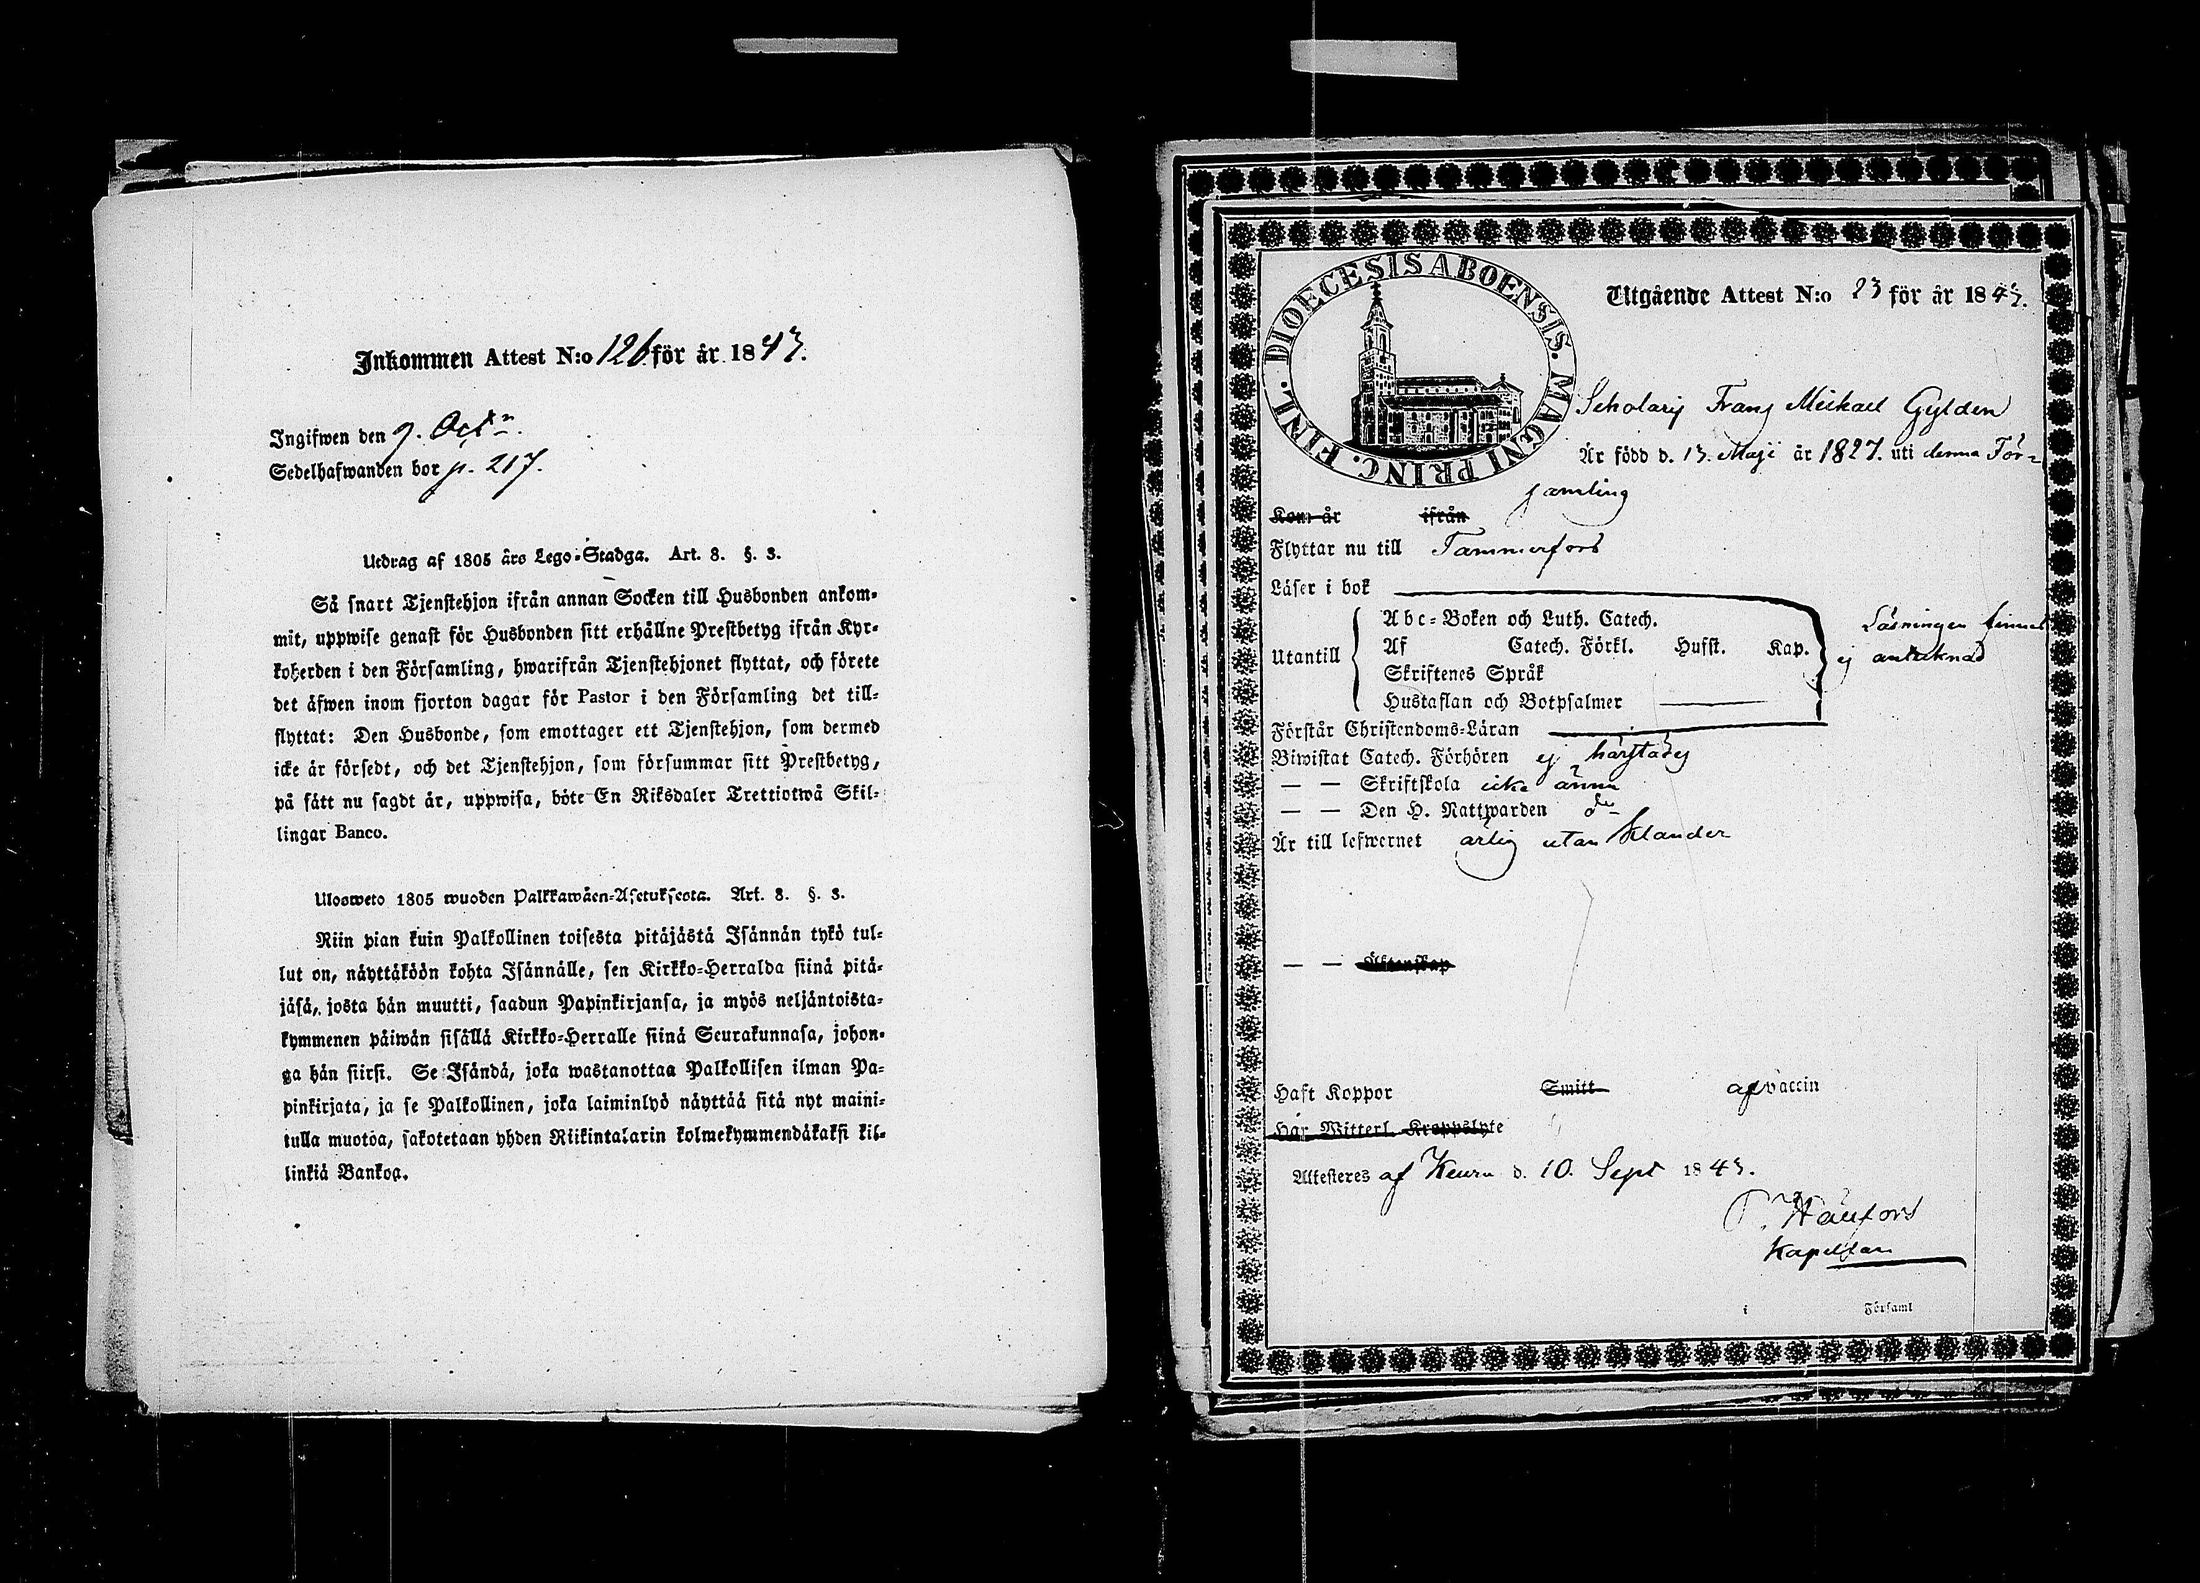 Inkommen Attest N:o 126 för år 1843.
Ingifwen den 9. Octr.
Sedelhafwanden bor p. 217.
Utdrag af 1805 års Lego-Stadga. Art. 8. §. 3.
Så snart Tjenstehjon ifrån annan Socken till Husbonden ankom-
mit, uppwise genast för Husbonden sitt erhållne Prestbetyg ifrån Kyr-
koherden i den Församling, hwarifrån Tjenstehjonet flyttat, och förete
det äfwen inom fjorton dagar för Pastor i den Församling det till-
flyttat: Den Husbonde, som emottager ett Tjenstehjon, som dermed
icke är försedt, och det Tjenstehjon, som försummar sitt Prestbetyg,
på sätt nu sagdt är, uppwisa, böte En Riksdaler Trettiotwå Skil-
lingar Banco.
Ulosweto 1805 wuoden Palkkawäen-Asetuksesta. Art. 8. §. 3.
Niin pian kuin Palkollinen toisesta pitäjästä Isännän tykö tul-
lut on, näyttäköön kohta Isännälle, sen Kirkko-Herralda siinä pitä-
jäsä, josta hän muutti, saadun Papinkirjansa, ja myös neljäntoista-
kymmenen päiwän sisällä Kirkko-Herralle siinä Seurakunnasa, johon-
ga hän siirsi. Se Isändä, joka wastanottaa Palkollisen ilman Pa-
pinkirjata, ja se Palkollinen, joka laiminlyö näyttää sitä nyt maini-
tulla muotoa, sakotetaan yhden Riikintalarin kolmekymmendäkaksi kil-
linkiä Bankoa.
DIOECESIS ABOENSIS. MAGNI PRINC. FINL.
Utgående Attest N:o 23 för år 1843.
Scholaris Frans Mickael Gylden
Är född d. 13. Maji år 1827. uti denna För-
samling
Kom år ifrån
Flyttar nu till Tammerfors
Läser i bok
Utantill
Abc-Boken och Luth. Catech.
Af Catech. Förkl. Husst. Kap.
Skriftenes Språk
Hustaflan och Botpsalmer
Läsningen finnes
ej antecknad
Förstår Christendoms-Läran
Biwistat Catech. Förhören ej härstädes
— — Skriftskola icke ännu
— — Den H. Nattwarden do
Är till lefwernet ärlig utan klander
— — Äktenskap
Haft Koppor Smitt af vaccin
Har Witterl. Kroppslyte
Attesteres af Keuru d. 10. Sept 1843.
Kapellan
i Församl